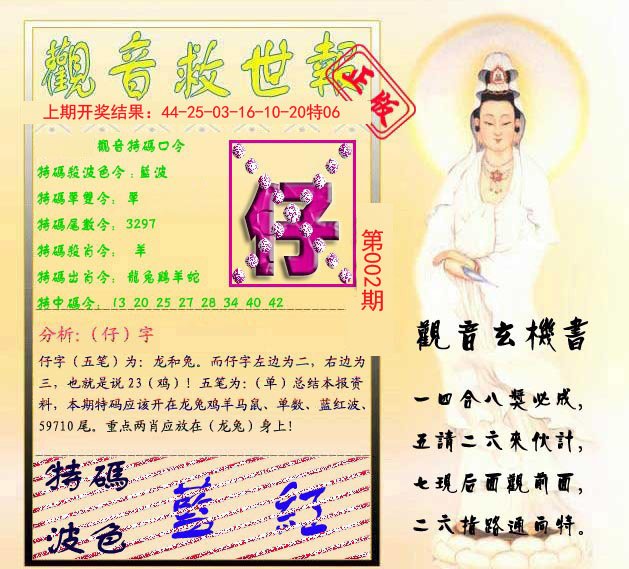 觀音救世報
正版
上期开奖结果：44-25-03-16-10-20特06
觀音特碼口令
特碼殺波色令：藍波
特碼單雙令： 單
特碼尾數令：3297
特碼殺肖令： 羊
特碼出肖令：龍兔鷄羊蛇
特中碼令： 13 20 25 27 28 34 40 42
仔
第002期
分析：（仔）字
仔字（五笔）为：龙和兔。而仔字左边为二，右边为
三，也就是说 23（鸡）！五笔为：（单）总结本报资
料，本期特码应该开在龙兔鸡羊马鼠、单数、蓝红波、
59710 尾。重点两肖应放在（龙兔）身上！
特碼
波色
藍 紅
觀音玄機書
一四合八獎必成，
五請二六來伙計，
七現后面觀前面，
二六指路通而特。